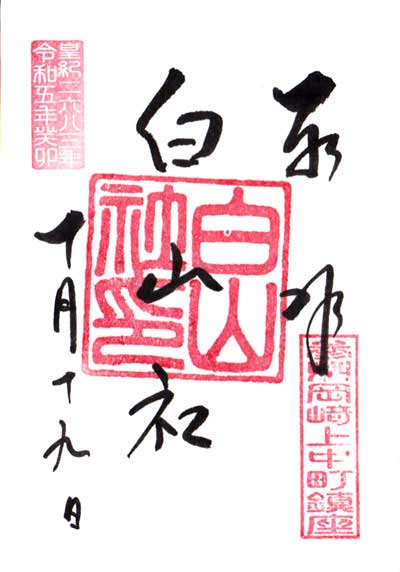 奉拝
岡崎上中町鎮座
白山社
白山
社印
皇紀二六八三年
令和五年癸卯
十月十九日